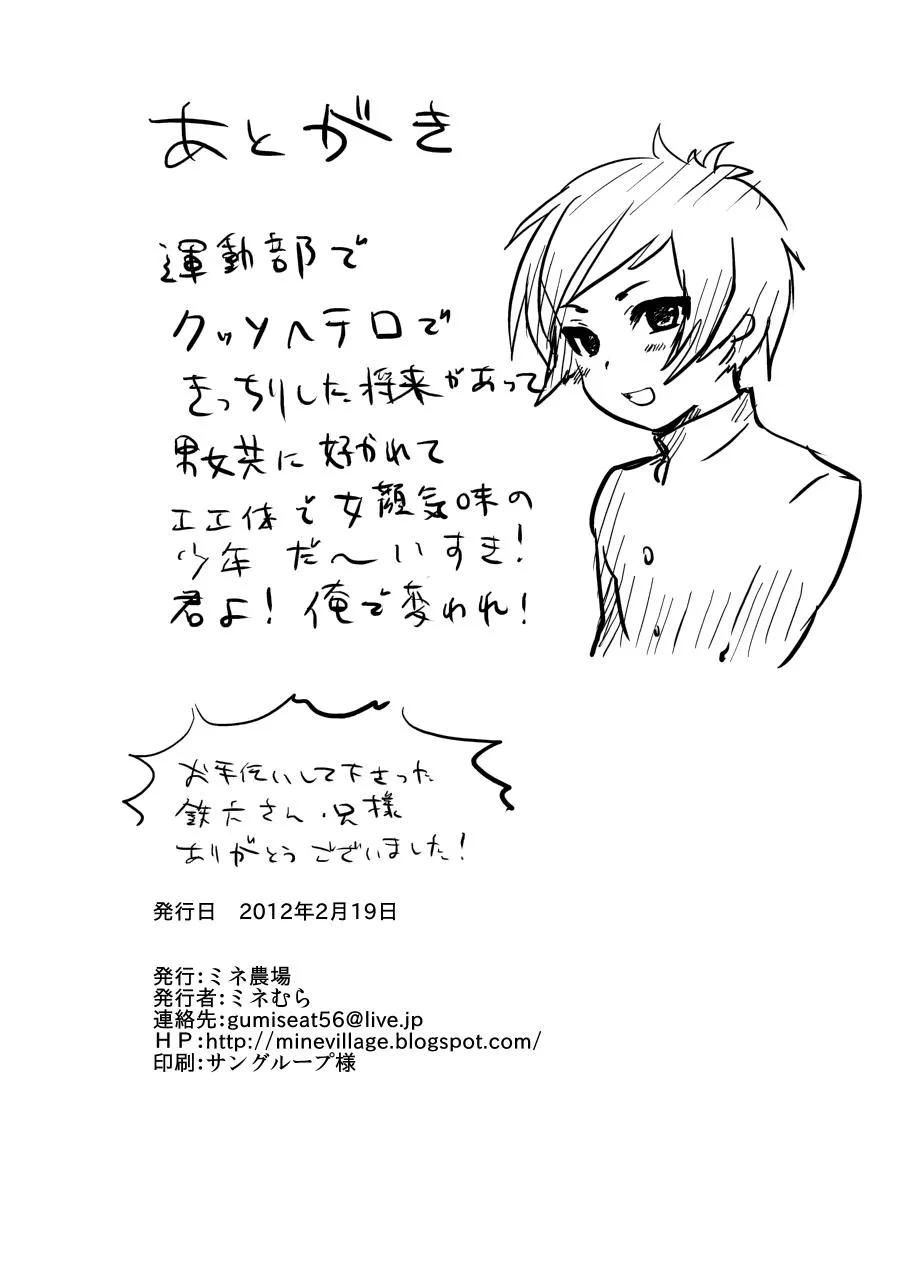 あとがき
運動部で
クッソヘテロで
きっちりした将来があって
男女共に好かれて
エエ体で女顔気味の
少年 だ〜いすき!
君よ! 俺で変われ!
お手伝いして下さった
鉄六さん・兄様
ありがとうございました!
発行日 2012年2月19日
発行:ミネ農場
発行者:ミネむら
連絡先:gumiseat56@live.jp
HP:http://minevillage.blogspot.com/
印刷:サングループ様